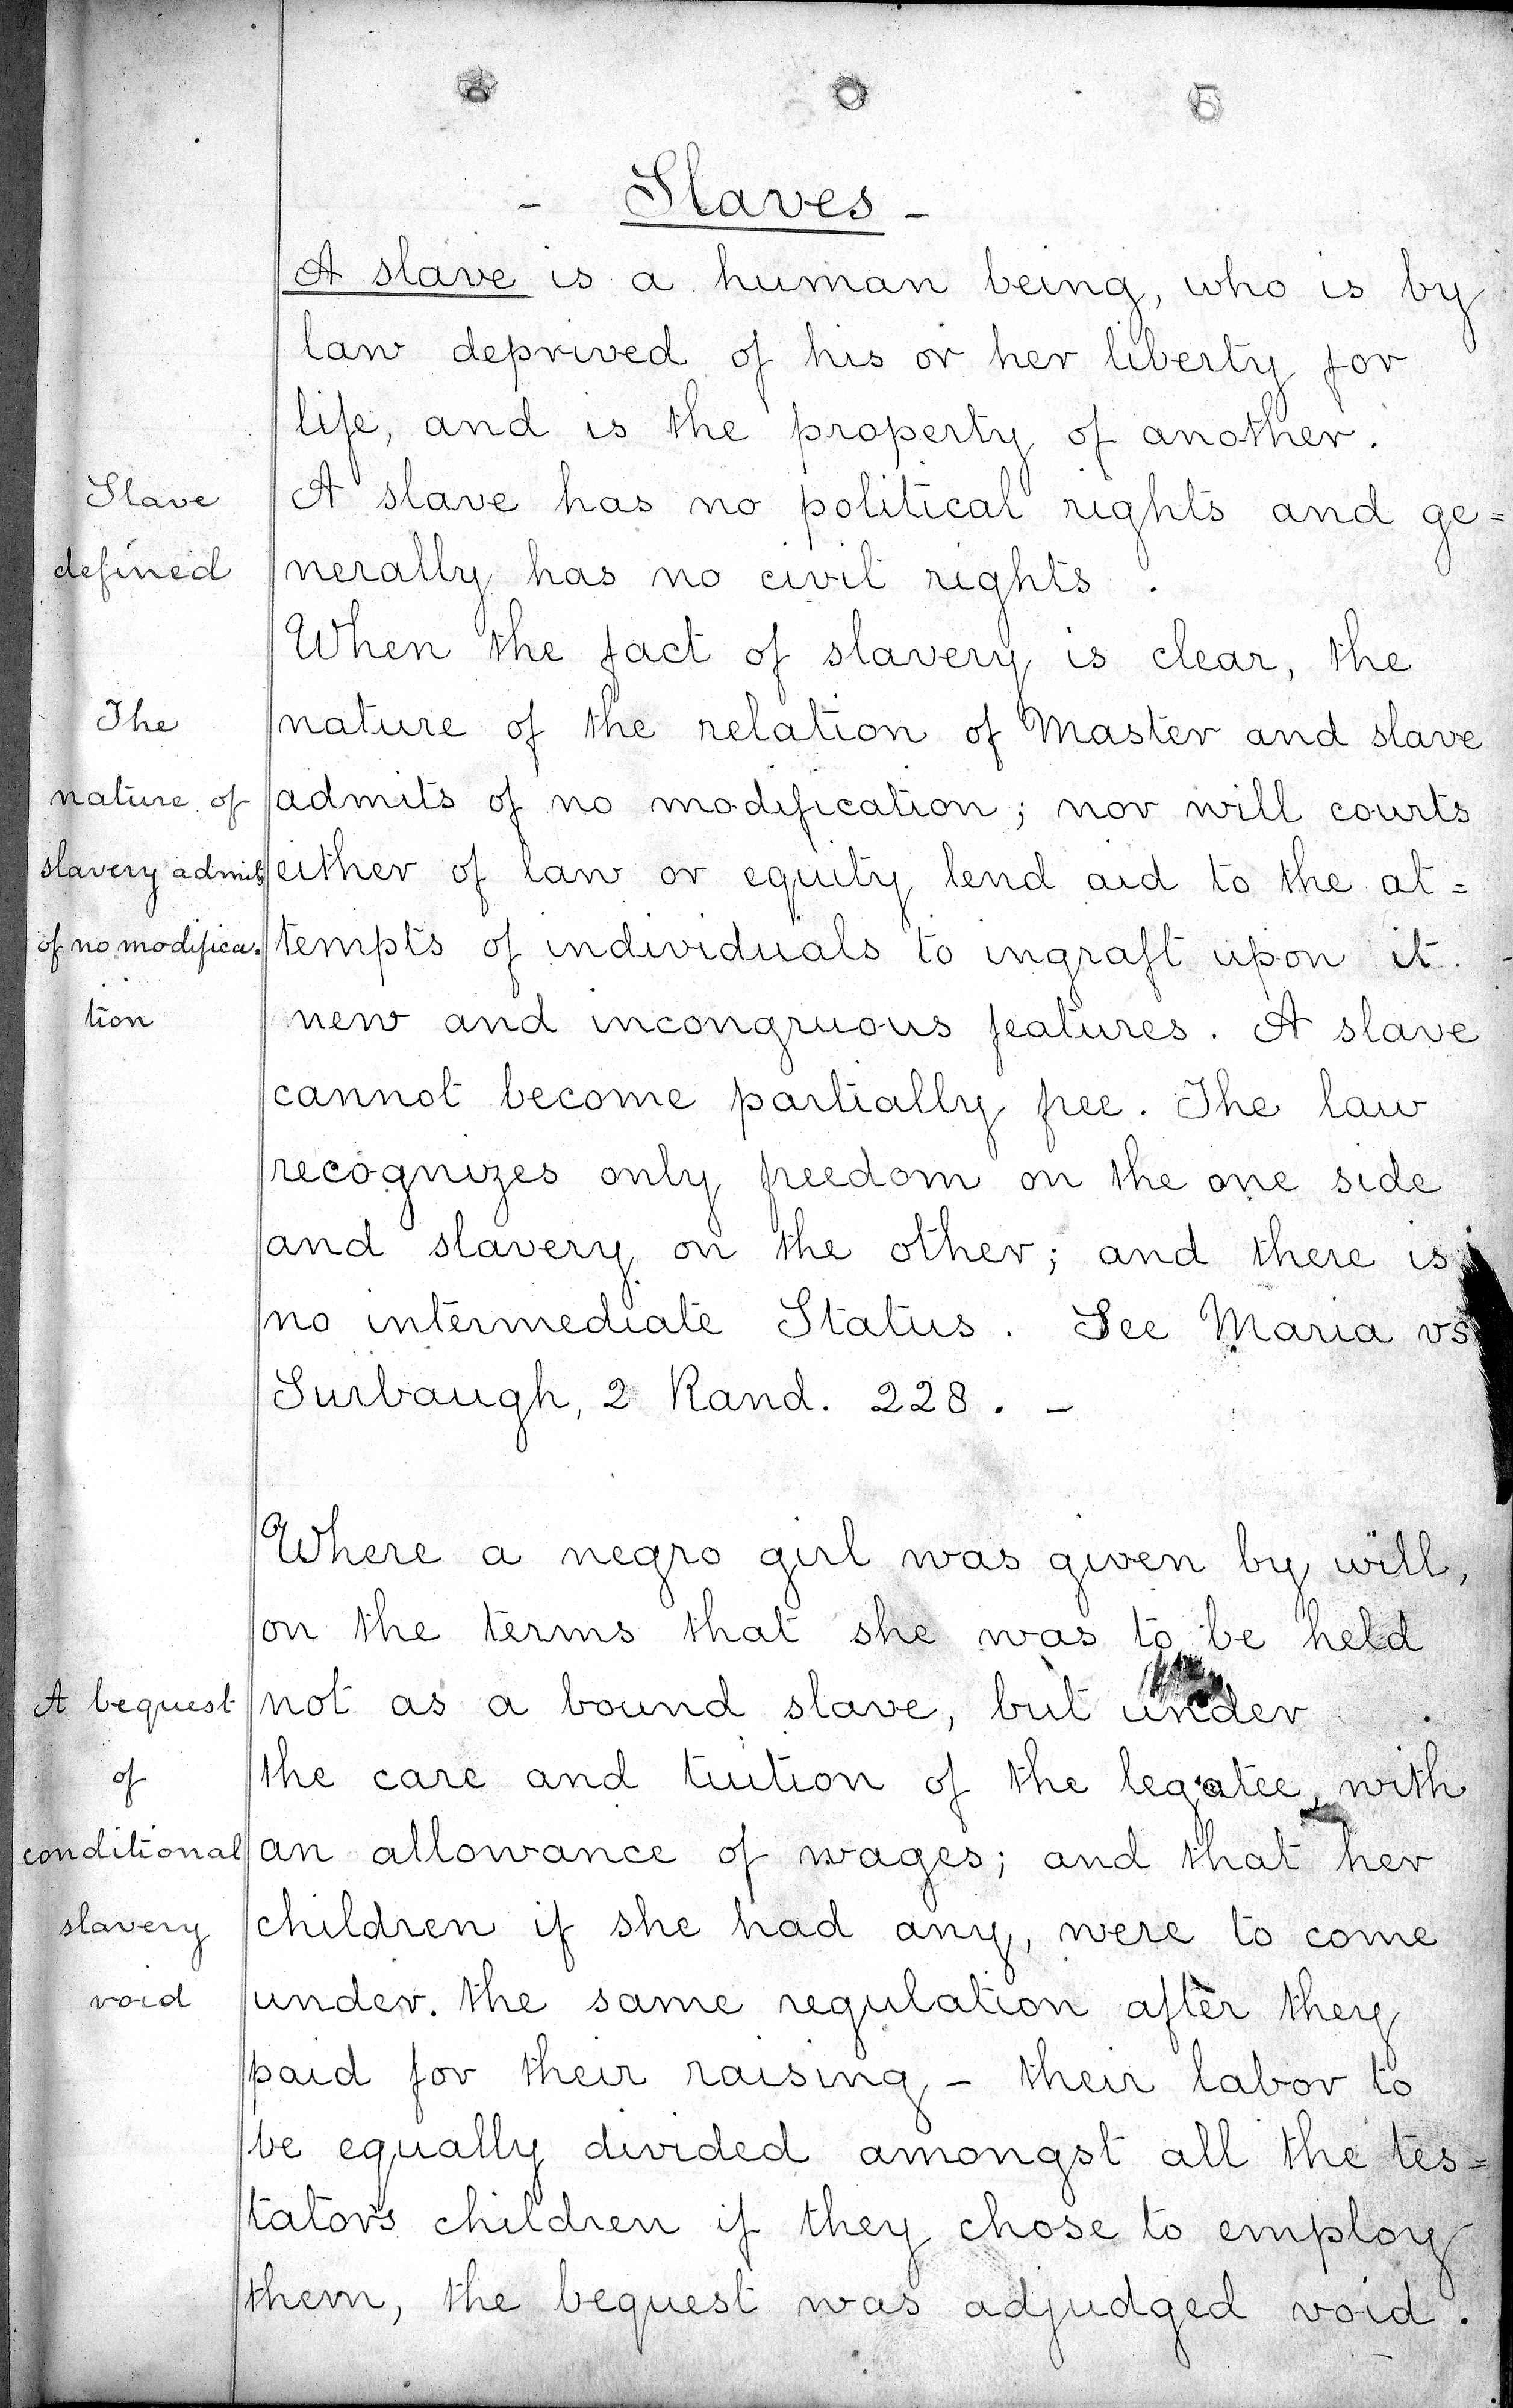 - Slaves -
A slave is a human being, who is by
law deprived of his or her liberty for
life, and is the property of another.
Slave
defined
A slave has no political rights and ge=
nerally has no civil rights .
The
nature of
slavery admits
of no modifica=
tion
When the fact of slavery is clear, the
nature of the relation of Master and slave
admits of no modification; nor will courts
either of law or equity lend aid to the at=
tempts of individuals to ingraft upon it
new and incongruous features. A slave
cannot become partially free. The law
recognizes only freedom on the one side
and slavery on the other; and there is
no intermediate Status. See Maria vs
Surbaugh, 2 Rand. 228. -
A bequest
of
conditional
slavery
void
Where a negro girl was given by will,
on the terms that she was to be held
not as a bound slave, but under
the care and tuition of the legatee, with
an allowance of wages; and that her
children if she had any, were to come
under. the same regulation after they
paid for their raising - their labor to
be equally divided amongst all the tes=
tator's children if they chose to employ
them, the bequest was adjudged void.